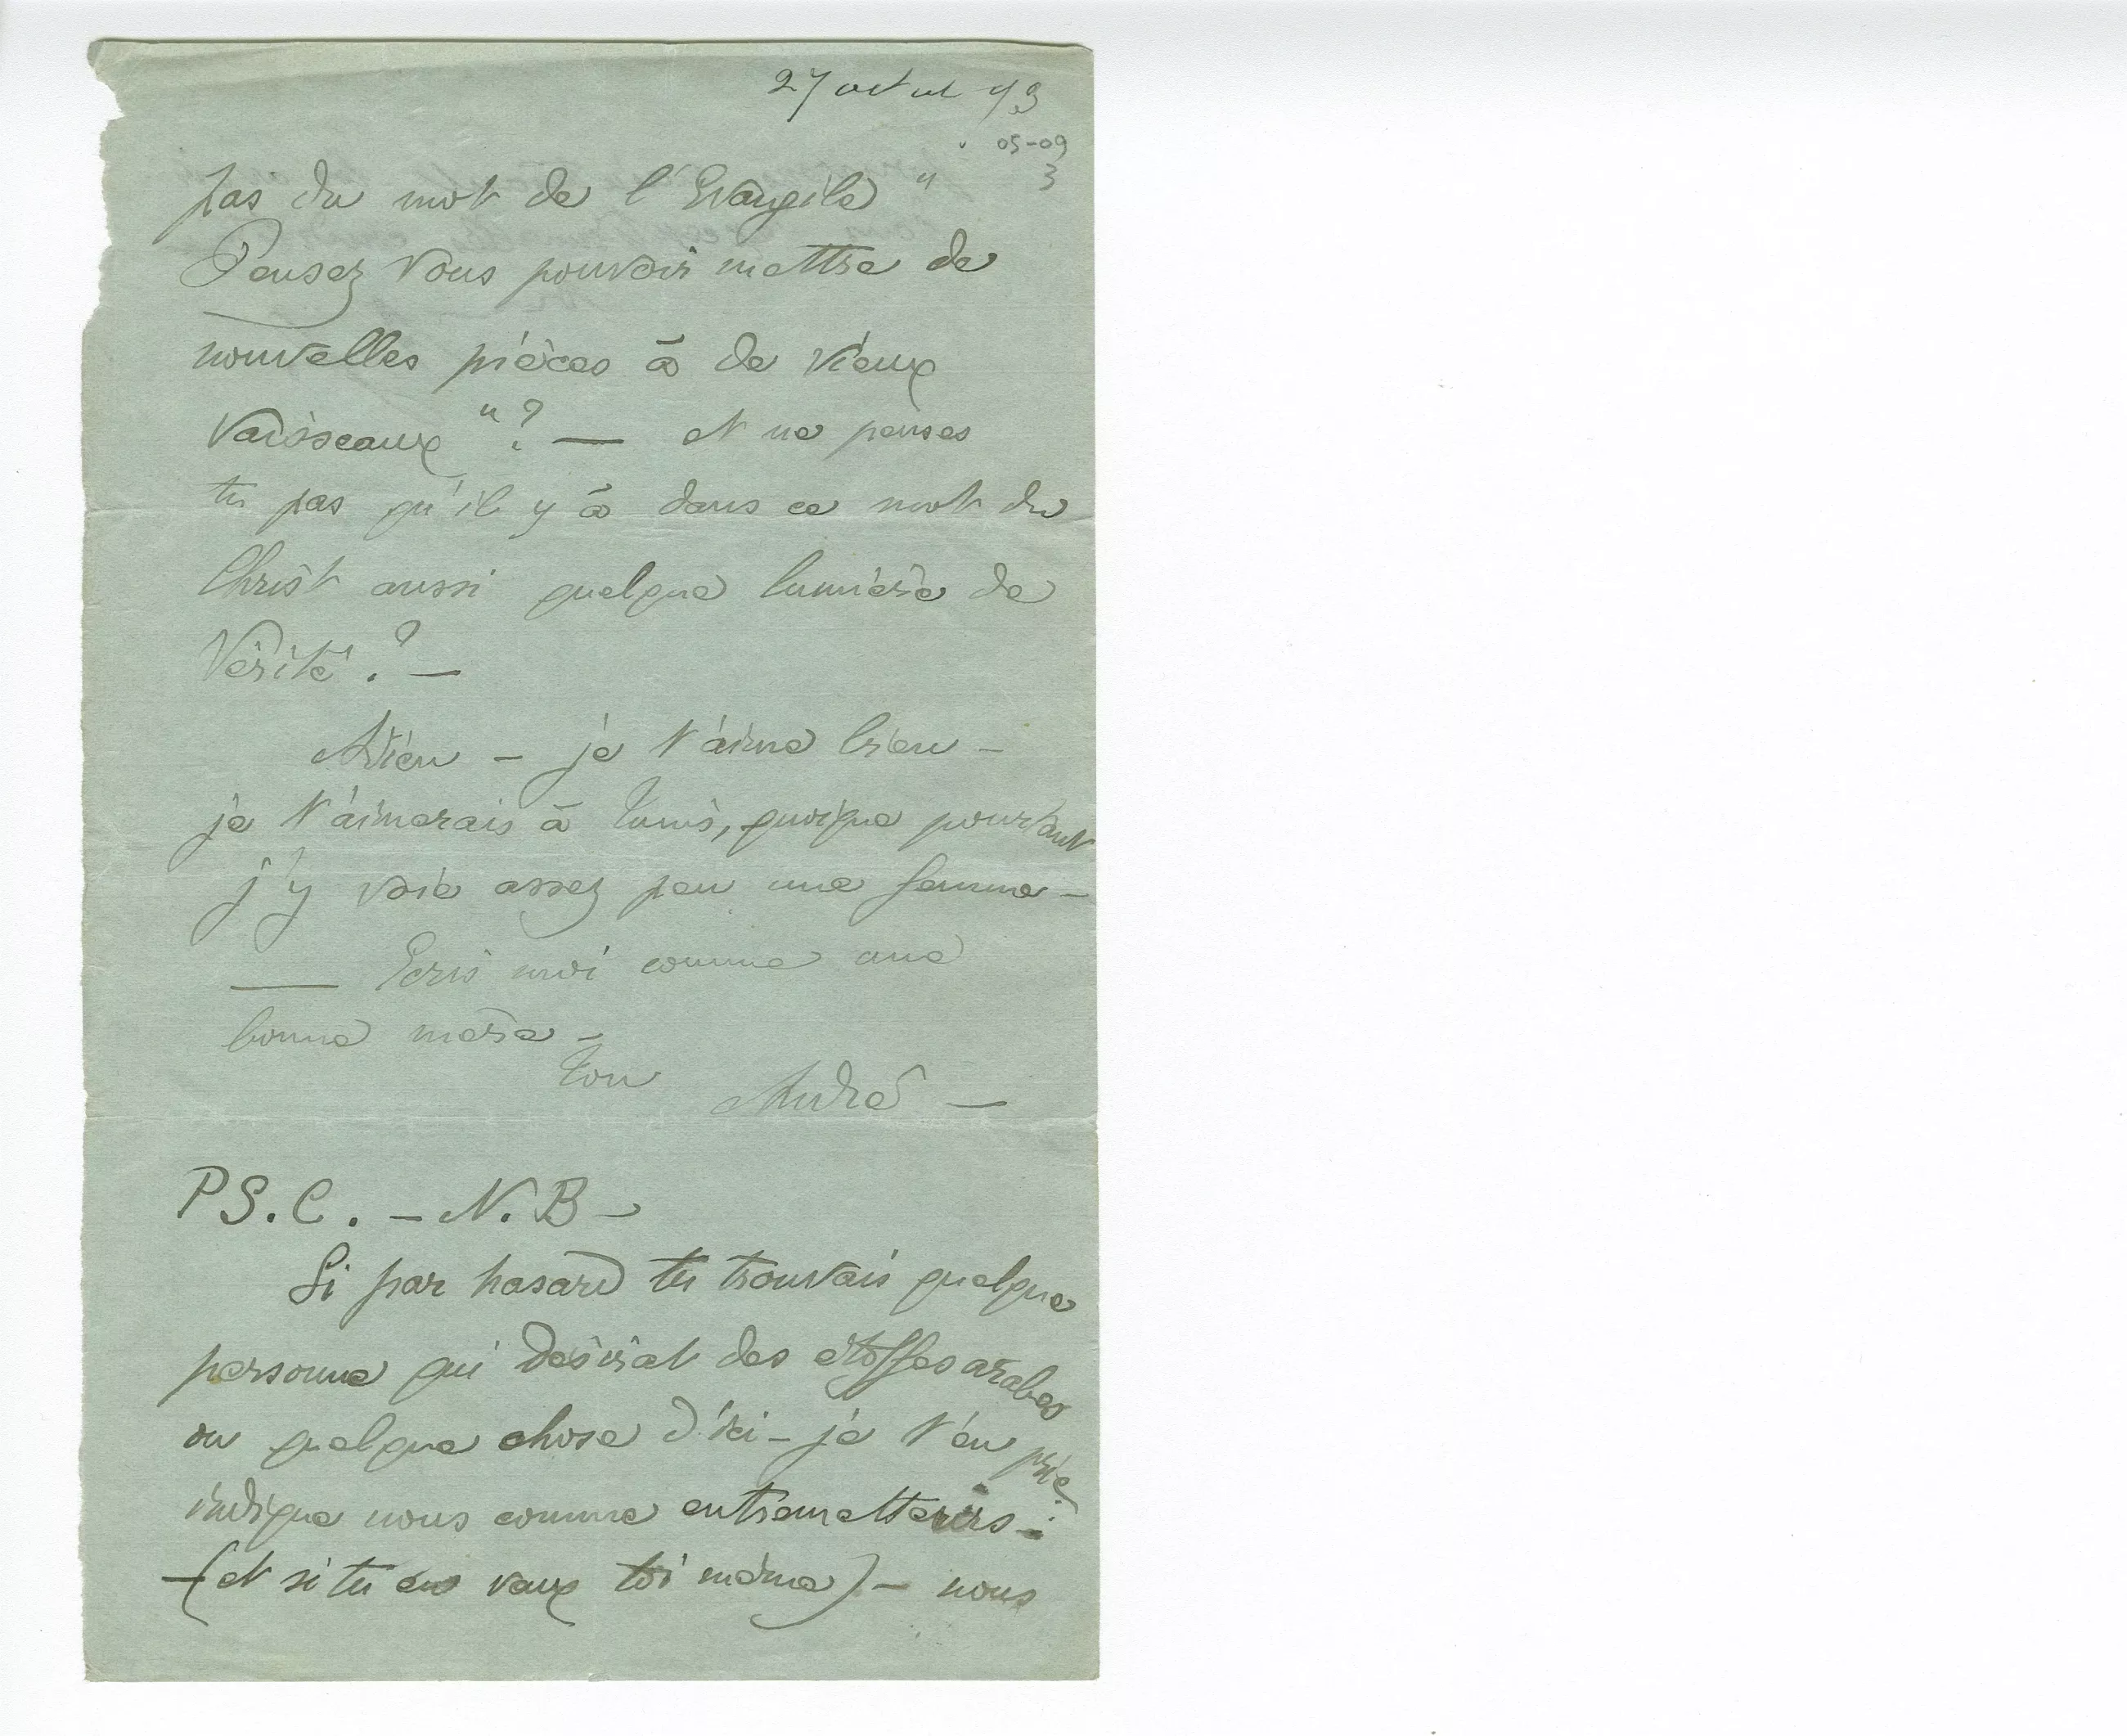 27 oct 93
05-09
3
pas du mot de l'Evangile "
Pensez vous pouvoir mettre de
nouvelles pièces à de vieux
vaisseaux " ? — et ne penses
tu pas qu'il y à dans ce mot du
Christ aussi quelque lumière de
Vérité ? —
Adieu — je t'aime bien —
je t'aimerais à Tunis, quoique pourtant
j'y voie assez peu une femme —
— Ecris moi comme une
bonne mère —
Ton
André —
PS.C. — N.B —
Si par hasard tu trouvais quelque
personne qui désirat des étoffes arabes
ou quelque chose d'ici — je t'en prie
indique nous comme entremetteurs —
— (et si tu en veux toi même) — nous